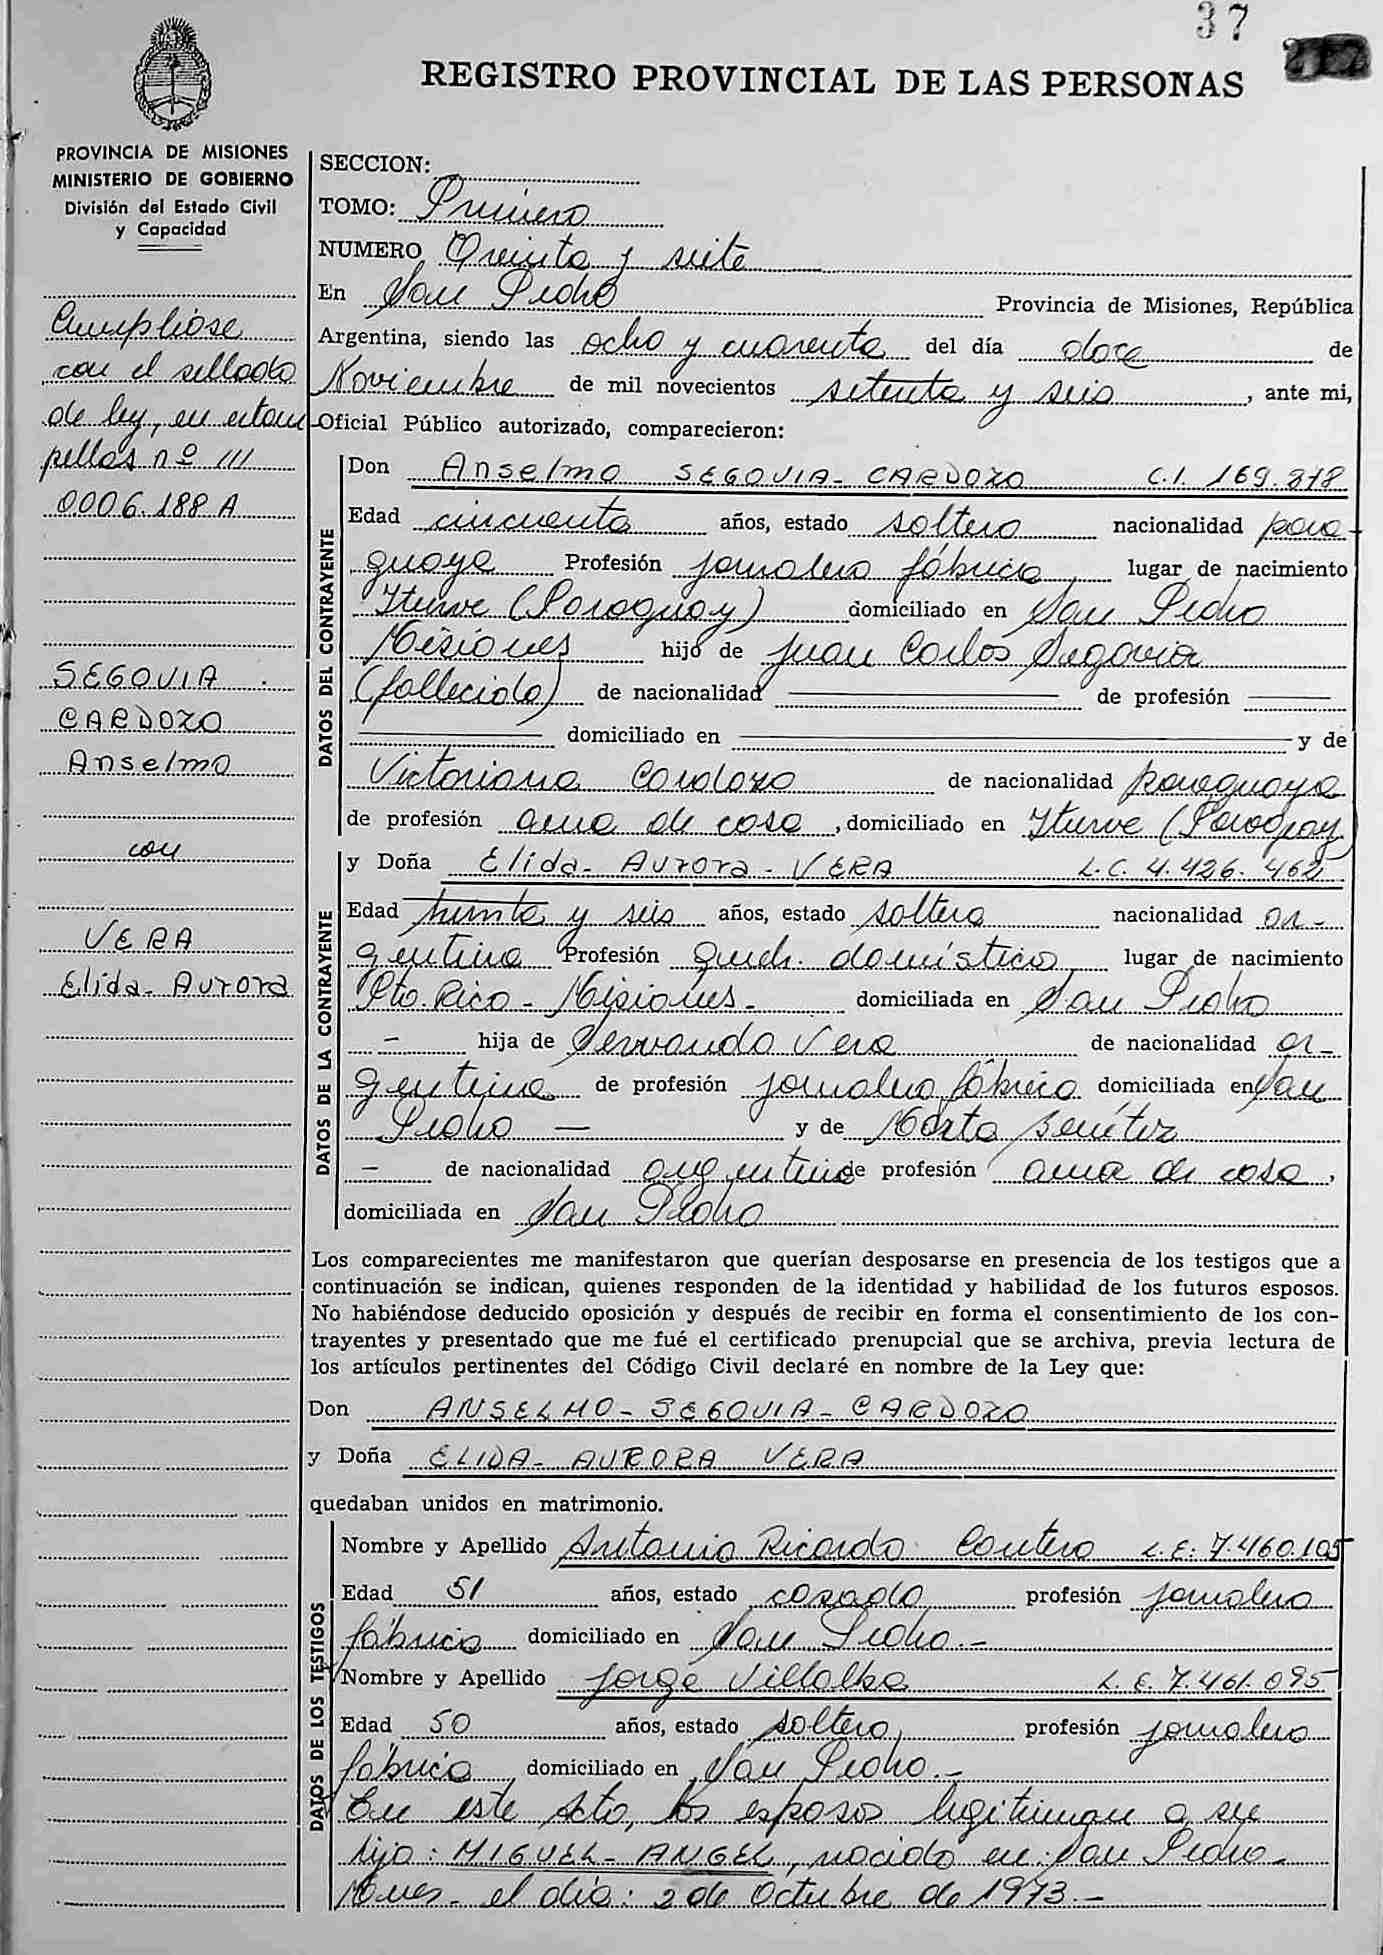 37
REGISTRO PROVINCIAL DE LAS PERSONAS
PROVINCIA DE MISIONES
MINISTERIO DE GOBIERNO
División del Estado Civil
y Capacidad
Cumpliose
con el sellado
de ley, en estam
pillas nº III
0006.188 A
SEGOVIA
CARDOZO
Anselmo
con
VERA
Elida- Aurora
SECCION:
TOMO: Primero
NUMERO Treinta y siete
En San Pedro Provincia de Misiones, República
Argentina, siendo las ocho y cuarenta del día doce de
Noviembre de mil novecientos setenta y seis, ante mi,
Oficial Público autorizado, comparecieron:
DATOS DEL CONTRAYENTE
Don Anselmo SEGOVIA- CARDOZO C.I. 169.818
Edad cincuenta años, estado soltero nacionalidad para-
guaya Profesión jornalero fábrica lugar de nacimiento
Yturve (Paraguay) domiciliado en San Pedro
Misiones hijo de Juan Carlos Segovia
(fallecido) de nacionalidad de profesión
domiciliado en y de
Victoriana Cardozo de nacionalidad paraguaya
de profesión ama de casa, domiciliado en Yturve (Paraguay)
DATOS DE LA CONTRAYENTE
y Doña Elida- Aurora- VERA L.C. 4.426.462
Edad treinta y seis años, estado soltera nacionalidad ar-
gentina Profesión queh. doméstico lugar de nacimiento
Pto. Rico- Misiones- domiciliada en San Pedro
- hija de Servando Vera de nacionalidad ar-
gentina de profesión jornalero fábrica domiciliada en San
Pedro — y de Marta Benítez
- de nacionalidad argentina de profesión ama de casa,
domiciliada en San Pedro
Los comparecientes me manifestaron que querían desposarse en presencia de los testigos que a
continuación se indican, quienes responden de la identidad y habilidad de los futuros esposos.
No habiéndose deducido oposición y después de recibir en forma el consentimiento de los con-
trayentes y presentado que me fué el certificado prenupcial que se archiva, previa lectura de
los artículos pertinentes del Código Civil declaré en nombre de la Ley que:
Don ANSELMO- SEGOVIA- CARDOZO
y Doña ELIDA- AURORA VERA
quedaban unidos en matrimonio.
DATOS DE LOS TESTIGOS
Nombre y Apellido Antonio Ricardo Contero L.E: 7.460.105
Edad 51 años, estado casado profesión jornalero
fábrica domiciliado en San Pedro.-
Nombre y Apellido Jorge Villalba L.E. 7.461.095
Edad 50 años, estado soltero, profesión jornalero
fábrica, domiciliado en San Pedro.-
En este Acto, los esposos legitiman a su
hijo: MIGUEL- ANGEL, nacido en: San Pedro-
Mnes- el día: 2 de Octubre de 1973.-